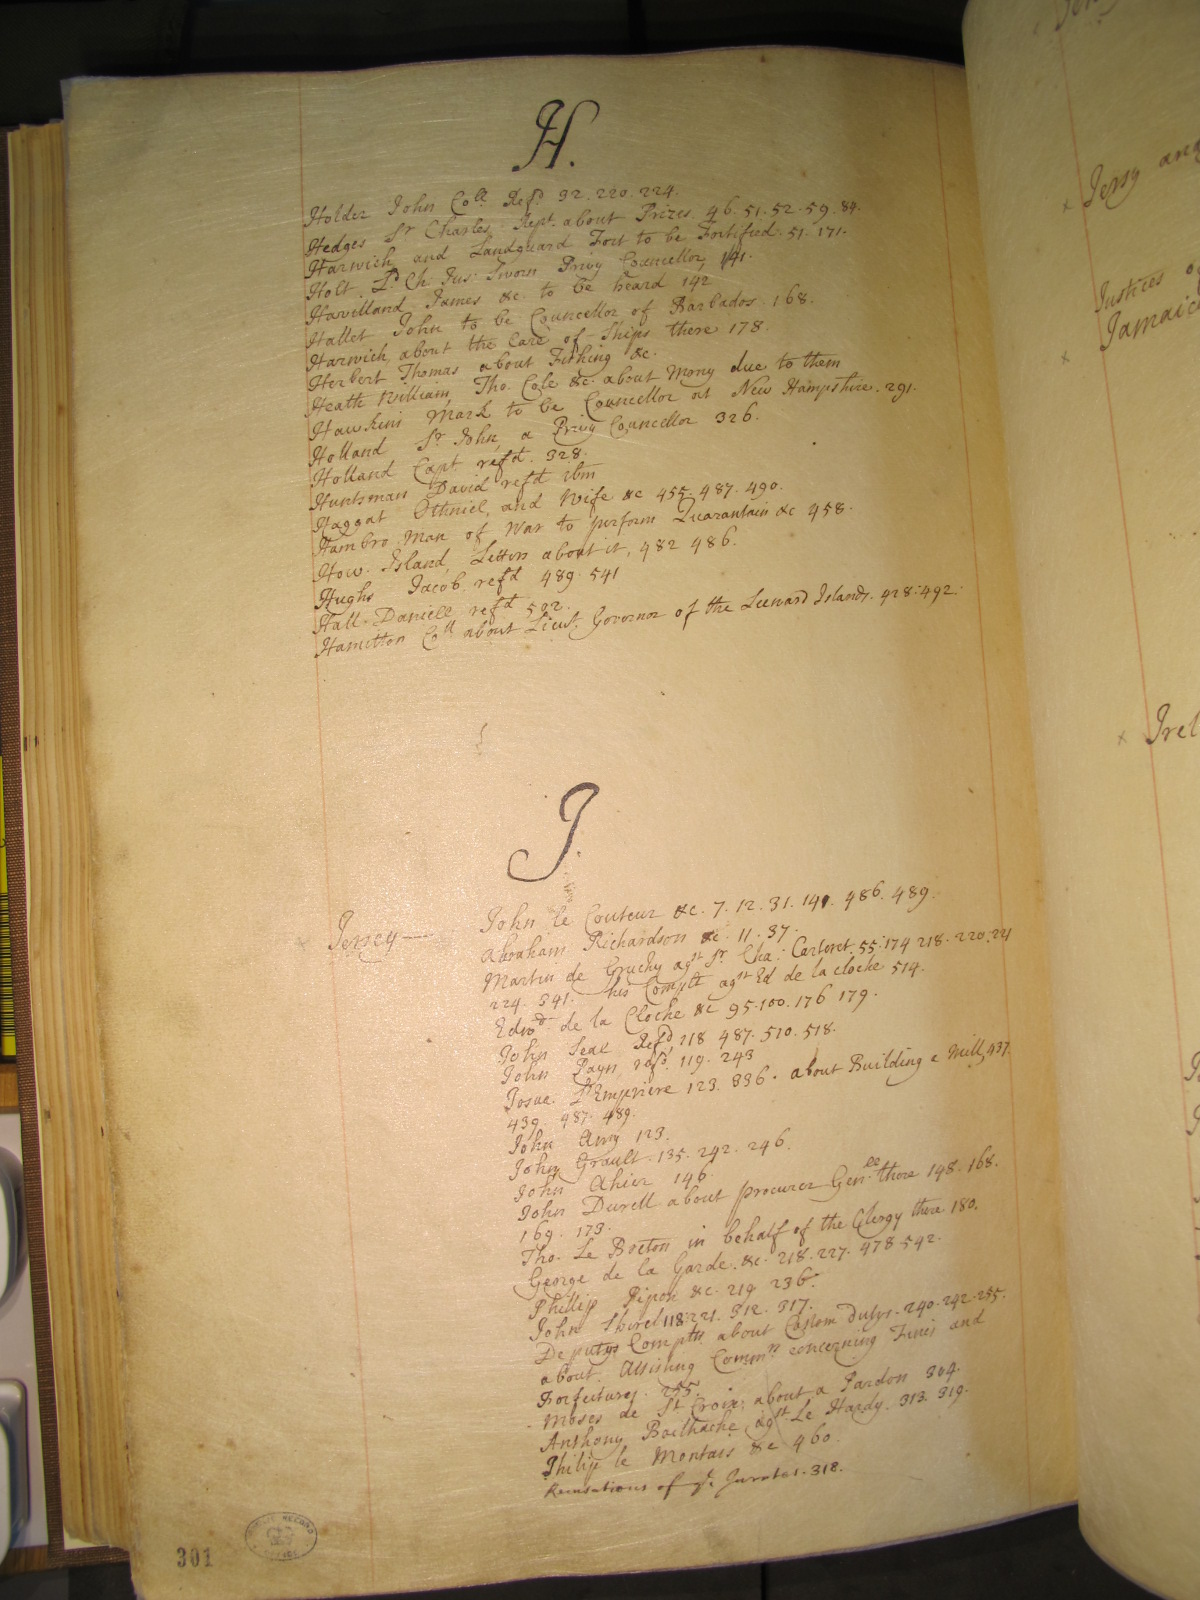 H.
Holder John Coll. Refd. 32. 220. 224.
Hedges Sr. Charles, Rept. about Prizes. 46. 51. 52. 59. 84.
Harwich and Landguard Fort to be Fortified. 51. 171.
Holt Ld. Ch. Jus. Sworn Privy Councellor, 141.
Havilland James &c. to be heard 142
Hallet John to be Councellor of Barbados. 168.
Harwich, about the Care of Ships there 178.
Herbert Thomas about Fishing &c.
Heath William, Tho. Cole &c. about Mony due to them
Hawkins Mark to be Councellor at New Hampshire. 291.
Holland Sr. John, a Privy Councellor 326.
Holland Capt. refd. 328.
Huntsman David refd ibm
Haggat Othniel, and Wife &c 455. 487. 490.
Hambro. Man of War to perform Quarantain &c 458.
How. Island, Letters about it, 482 486.
Hughs Jacob. refd 489. 541
Hall. Daniell refd 502.
Hamilton Coll about Lieut. Governor of the Leeward Islands. 428. 492.
J.
Jersey John le Couteur &c. 7. 12. 31. 141. 486. 489.
Abraham Richardson &c. 11. 37.
Martin de Gruchy agst Sr. Cha: Carteret. 55. 174 218. 220. 221
224. 341. his Complt agst Ed de la cloche 514.
Edwd. de la Cloche &c 95. 100. 176 179.
John Seal Refd, 118 487. 510. 518.
John Payn, refd. 119. 243
Josua L'Empriere 123. 336. about Building a Mill, 437.
439. 487. 489.
John Amy 123.
John Grault. 135. 242. 246.
John Ahier 146.
John Durell about procurer Genll. there 148. 168.
169. 173.
Tho. Le Breton in behalf of the Clergy there 180.
George de la Garde. &c. 218. 227. 478 542.
Phillip Pipon &c. 219 236.
John Shirel 118. 221. 312. 317.
Deputys Complts about Custom Dutys. 240. 242. 255.
about. Assising Commn. concerning Fines and
Forfeitures. 255.
Moses de St Croix, about a Pardon 304.
Anthony Bailhache, agst. Le Hardy. 313. 319.
Philip le Montais &c 460.
Recusations of ye. Jurates. 318.
301
PUBLIC RECORD
OFFICE
Jersy and
Justices
Jamaica
Irel